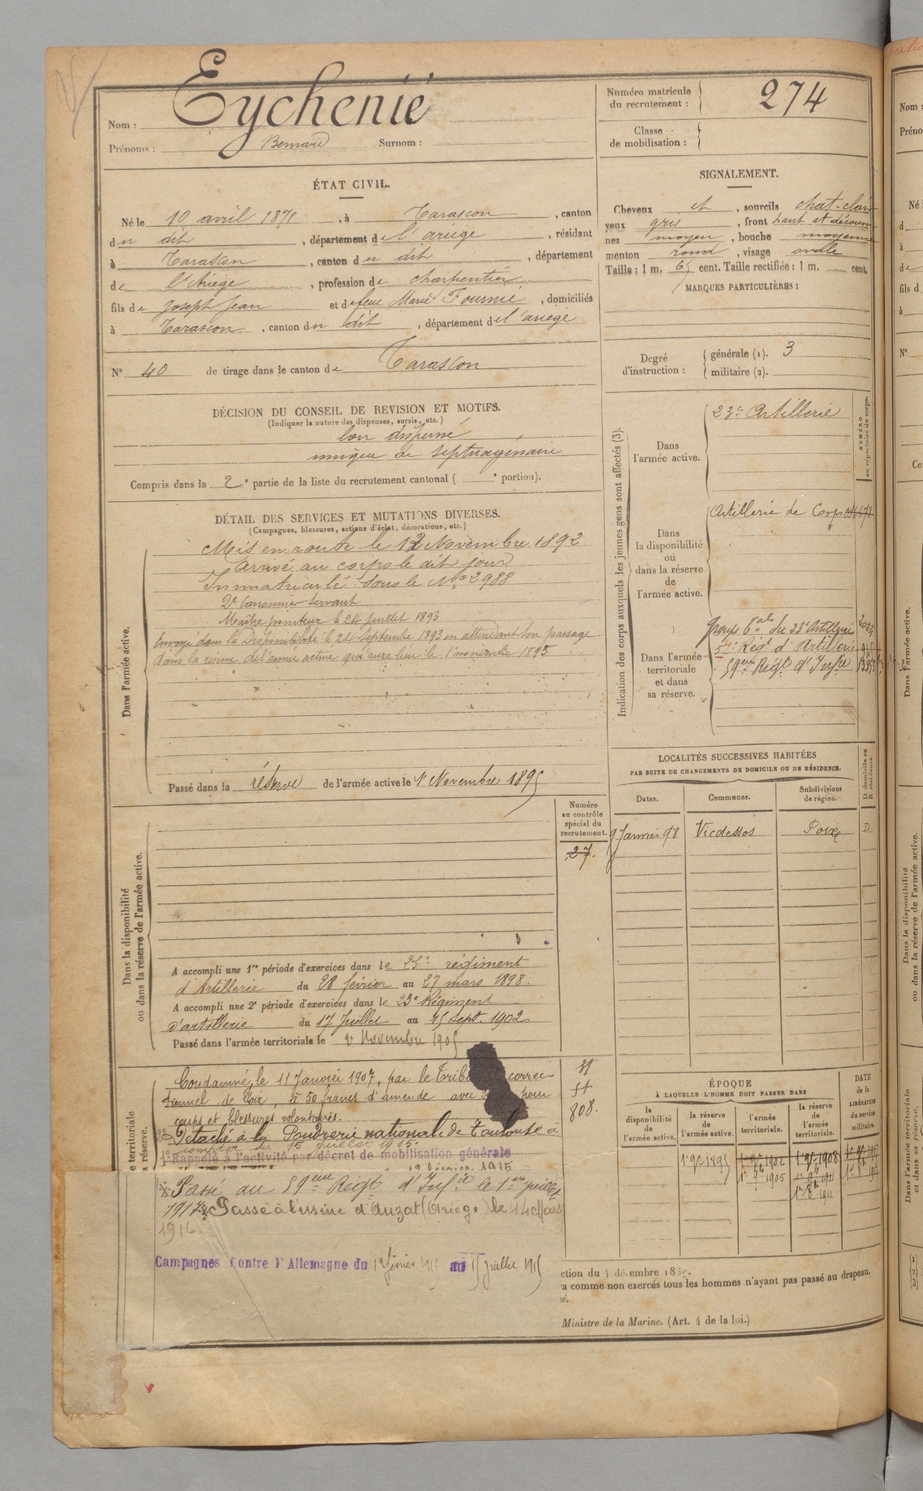 Nom : Eychenié
Prénoms : Bernard Surnom :
Numéro matricule
du recrutement : 274
Classe
de mobilisation :
ÉTAT CIVIL.
Né le 10 avril 1871, à Tarascon, canton
du dit, département de l'ariège, résidant
à Tarascon, canton du dit, département
de l'Ariège, profession de charpentier
fils de Joseph Jean et de feue Marie Fournié, domiciliés
à Tarascon, canton du dit, département de l'ariège
N° 40 de tirage dans le canton de Tarascon
SIGNALEMENT.
Cheveux et, sourcils chat-clair
yeux gris, front haut et découvert
nez moyen, bouche moyenne
menton rond, visage ovale
Taille : 1 m. 65 cent. Taille rectifiée : 1 m. cent.
MARQUES PARTICULIÈRES :
Degré
d'instruction :
générale (1). 3
militaire (2).
DÉCISION DU CONSEIL DE REVISION ET MOTIFS.
(Indiquer la nature des dispenses, sursis, etc.)
bon dispensé
unique de septuagénaire
Compris dans la 2e partie de la liste du recrutement cantonal ( e portion).
DÉTAIL DES SERVICES ET MUTATIONS DIVERSES.
(Campagnes, blessures, actions d'éclat, décorations, etc.)
Dans l'armée active.
Mis en route le 12 Novembre 1892
Arrivé au corps le dit jour
Immatriculé sous le N° 2988
2e Canonnier servant
Maître pointeur le 24 juillet 1893
Envoyé dans la Disponibilité le 24 septembre 1893 en attendant son passage
dans la réserve de l'armée active qui aura lieu le 1er novembre 1895
Passé dans la réserve de l'armée active le 1er Novembre 1895
Indication des corps auxquels les jeunes gens sont affectés (3).
Dans
l'armée active.
23e Artillerie
Dans
la disponibilité
ou
dans la réserve
de
l'armée active.
Artillerie de Corps
Dans l'armée
territoriale
et dans
sa réserve.
groupe du 23e Artillerie
5e Régt d'Artillerie
59eme Régt d'Infrie
LOCALITÉS SUCCESSIVES HABITÉES
PAR SUITE DE CHANGEMENTS DE DOMICILE OU DE RÉSIDENCE.
Dates. Communes. Subdivisions
de région.
D domicile ou
R résidence.
9 Janvier 98 Vicdessos Foix D.
Numéro
au contrôle
spécial du
recrutement.
27.
Dans la disponibilité
ou dans la réserve de l'armée active.
A accompli une 1re période d'exercices dans le 23e régiment
d'Artillerie du 28 février au 27 mars 1898.
A accompli une 2e période d'exercices dans le 23e Régiment
d'artillerie du 17 Juillet au sept. 1902
Passé dans l'armée territoriale le 1er Novembre 1905
e territoriale
a réserve.
Condamné, le 11 Janvier 1907, par le Trib correc-
tionnel de Foix, à 50 francs d'amende avec pour
coups et blessures volontaires.
Détaché à la Poudrerie nationale de Toulouse à
compter du 15 juillet 1915.
Rappelé à l'activité par décret de mobilisation générale
1915
Passé au 59eme Régt d'Infie le 1er juillet
1917 Passé à l'usine d'Auzat (Ariège) le 14 Mars
1916
Campagnes Contre l'Allemagne du 1 février 1915 au 15 juillet 1915
808.
ÉPOQUE
À LAQUELLE L'HOMME DOIT PASSER DANS
la
disponibilité
de
l'armée active.
la réserve
de
l'armée active.
l'armée
territoriale.
la réserve
de
l'armée
territoriale.
DATE
de la
LIBÉRATION
du service
militaire.
1er 9bre 1895
1905
1908
1911
ction du 4 décembre 1889.
a comme non exercés tous les hommes n'ayant pas passé au drapeau.
sé.
Ministre de la Marine. (Art. 4 de la loi.)